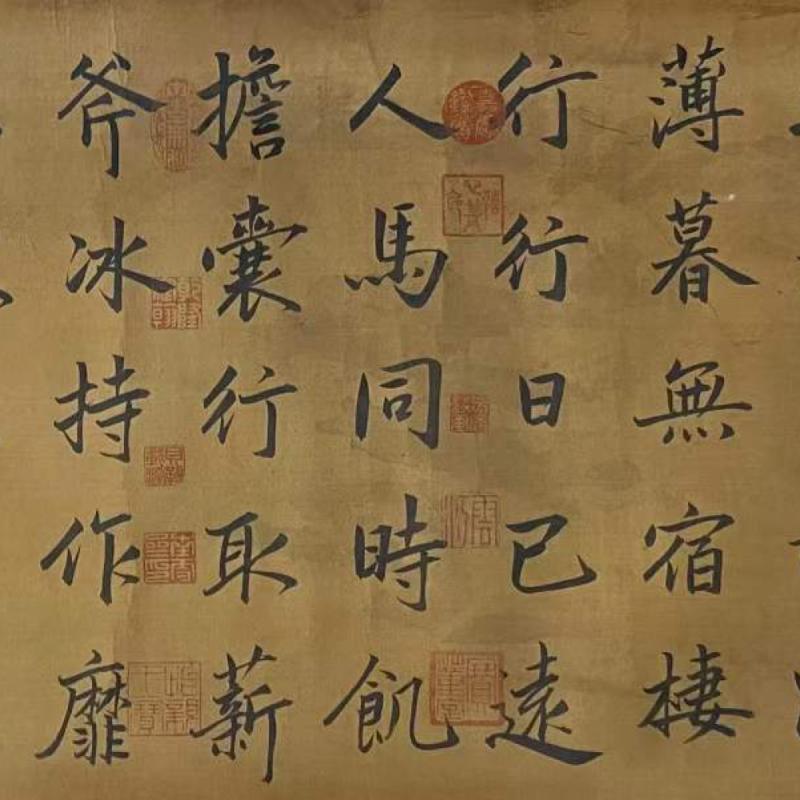 薄暮無宿棲
行行日已遠
人馬同時飢
擔囊行取薪
斧冰持作靡